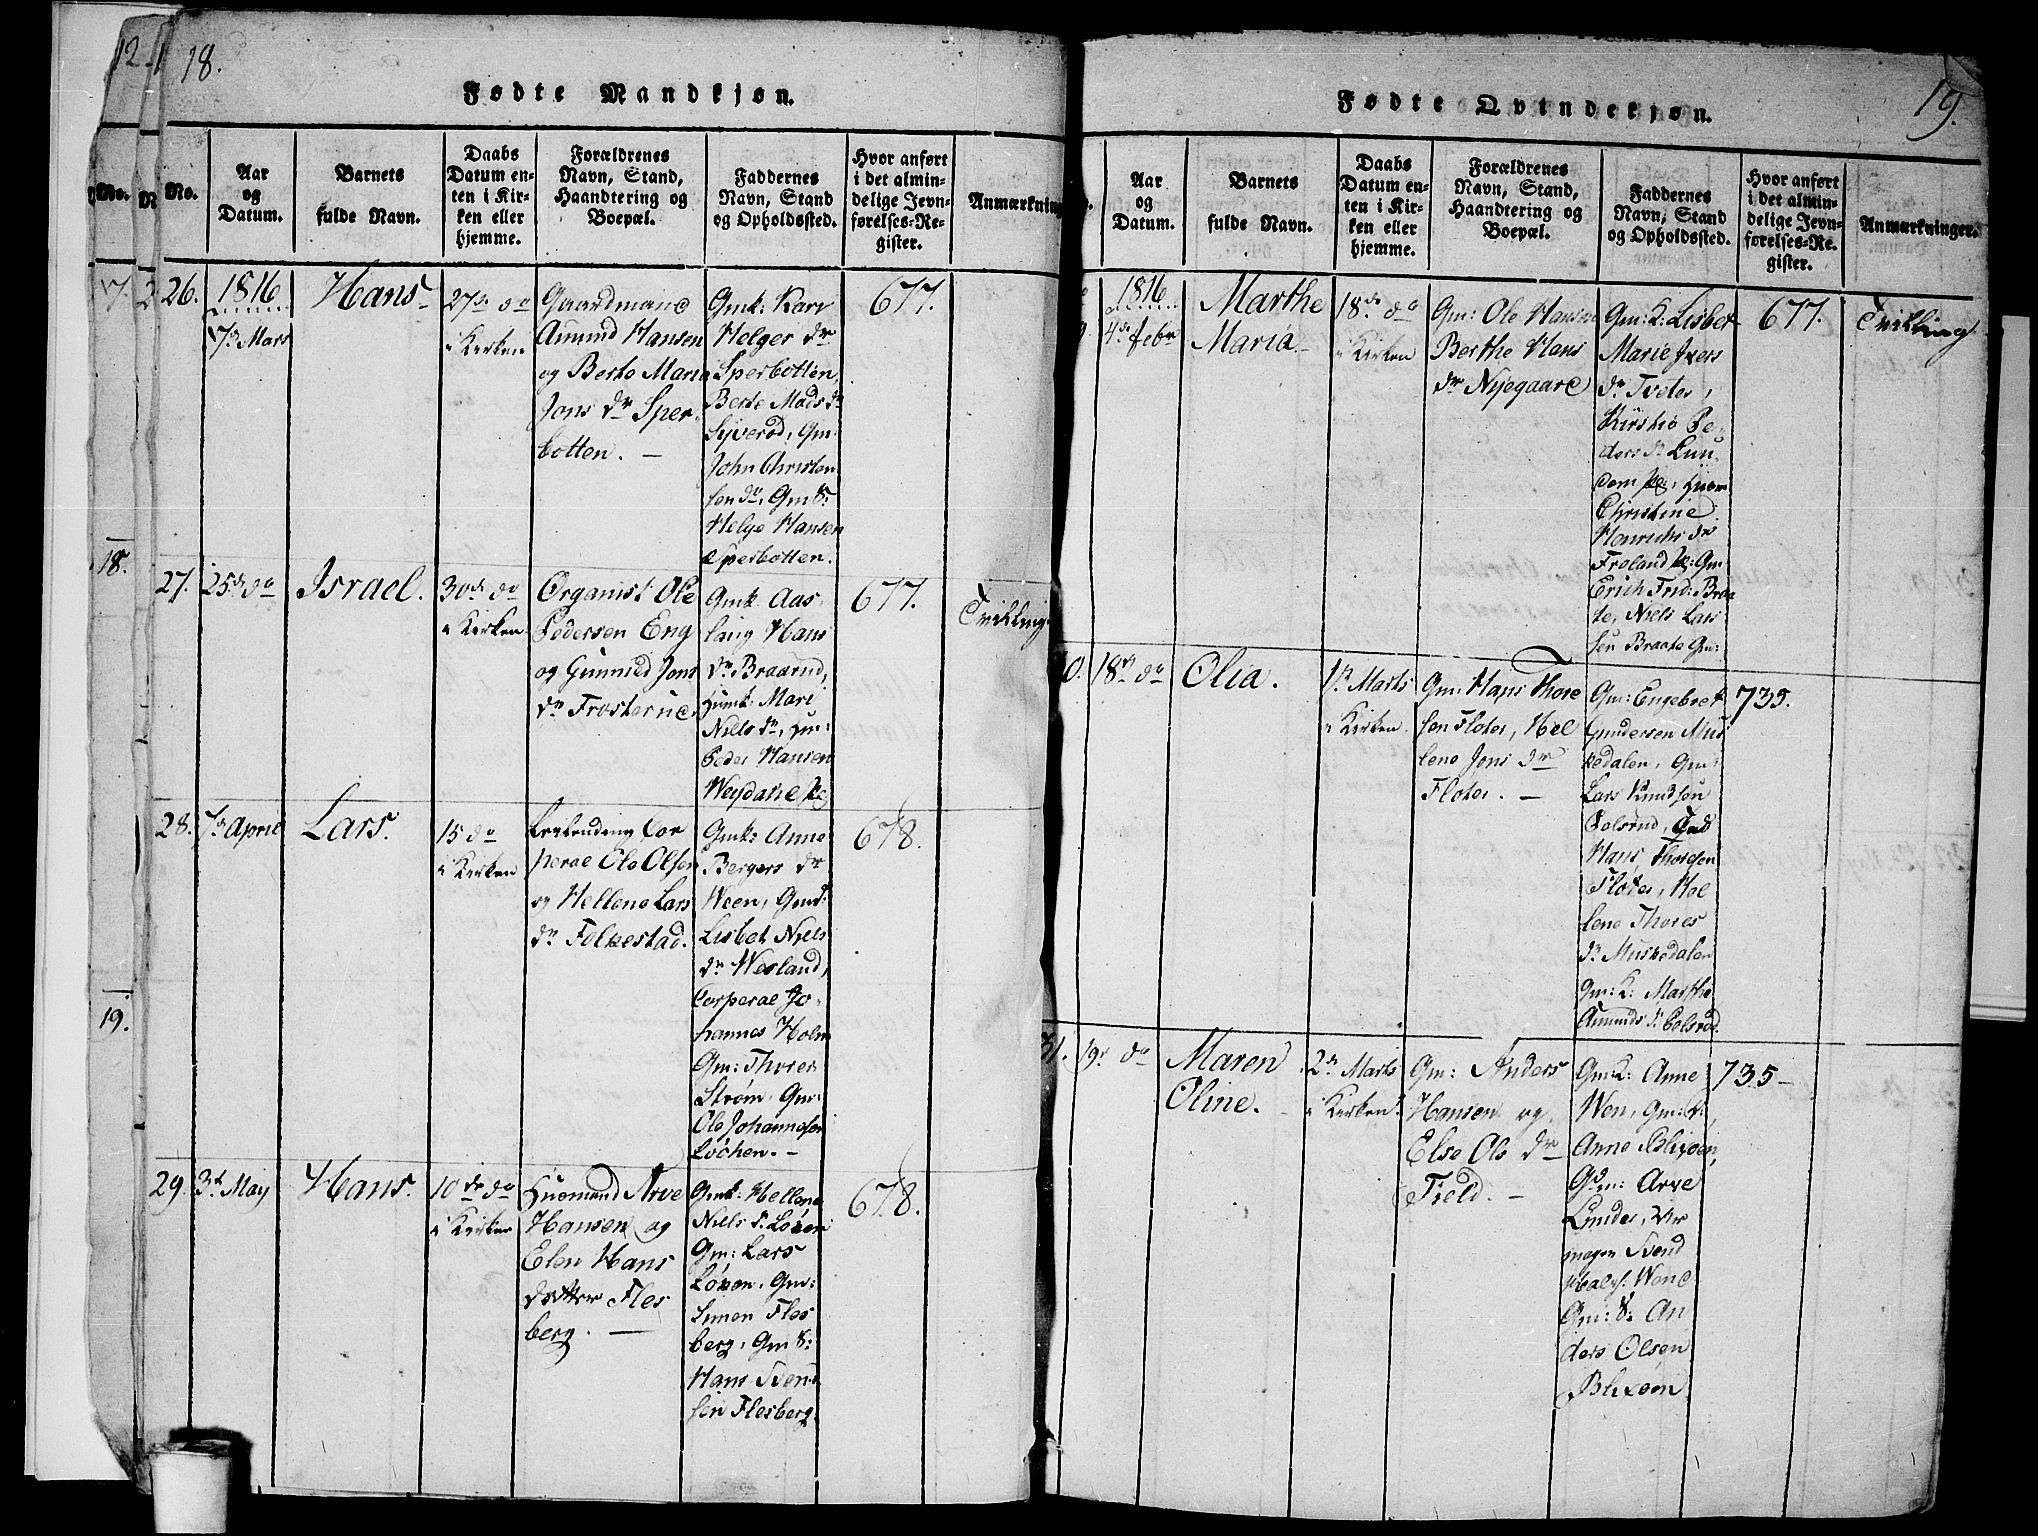 12
18.
Fødte Mandkjøn.
No.
No.
Aar
og
Datum.
Barnets
fulde Navn.
Daabs
Datum en-
ten i Kir-
ken eller
hjemme.
Forældrenes
Navn, Stand,
Haandtering og
Boepæl.
Faddernes
Navn, Stand
og Opholdssted.
Hvor anført
i det almin-
delige Jevn-
førelses-Re-
gister.
Anmærkning
17.
18.
19.
26.
1816
7de Mars
Hans
27de do
i Kirken
Gaardmand
Amund Hansen
og Berte Maria
Jons dr Sper-
botten. —
Gmk: Kari
Helger dr
Sperbotten,
Berte Mads dr
Syverød, Gm
John Christen
sen do, Gm S:
Helge Hansen
Sperbotten.
677.
27.
25de do
Israel.
30de do
i Kirken
Organist Ole
Pedersen Eng
og Gunnild Jons
dr Frosterud
Gmk Aas-
laug Hans
dr Braarud,
Huusmk: Mari
Niels dr, Hm:
Peder Hansen
677.
Tvilling
28.
7de April
Lars.
15 do
i Kirken
Cor
peral Ole Olsen
og Hellene Lars
dr Folkestad.
Gmks Anne
Bergers dr
Ween, Gmd:
Lisbet Niels
dr Wesland,
Corperal Jo-
hannes Holm
Gm: Thorer
Strøm, Gm:
Ole Johannesen
Løøken. —
678.
29.
3de May
Hans.
10de do
i Kirken
Huusmand Arve
Hansen og
Elen Hans
datter Fles
berg. —
Gmk: Hellene
Niels dr Løken
Gm: Lars
Løken, Gm:
Simen Fles
berg, Gm S:
Hans Svend
sen Flesberg.
678.
19.
Fødte Qvindekjøn.
Aar
og
Datum.
Barnets
fulde Navn.
Daabs
Datum en-
ten i Kir-
ken eller
hjemme.
Forældrenes
Navn, Stand,
Haandtering og
Boepæl.
Faddernes
Navn, Stand
og Opholdssted.
Hvor anført
i det almin-
delige Jevn-
førelses-Re-
gister.
Anmærkninger.
1816
4de Febr
Marthe
Maria.
18de do
i Kirken
Gm: Ole Hansen
Berthe Hans
dr Nyegaard
Gm: K: Lisbet
Marie Ivers
dr Tveter,
Kirstie Pe-
ders dr Lun
Christine
Henrichs dr
Froland Pg: Gm
Erich Frid: Braa
te, Niels Lar
sen Braate Gm:
677.
Tvilling
0.
18de do
Olia.
1de Marts
i Kirken
Gm: Hans Thore
sen Floter, Hel
lene Jons dr
Floter. —
Gm: Engebret
Gundersen Mus
kedalen, Gm:
Lars Knudsen
Hans Thoresen
Floter, Hel
lene Thores
dr Muskedalen
Gm: K: Marthe
Amunds dr
735.
31.
19de do
Maren
Oline.
2de Marts
i Kirken
Gm: Anders
Hansen og
Else Ols dr
Field. —
Gm: K: Anne
Wen, Gm: K:
Anne Blixøen,
Gm: Arve
Lunder,
Svend
Wend
Gm: S: An
ders Olsen
Blixøen
735 —